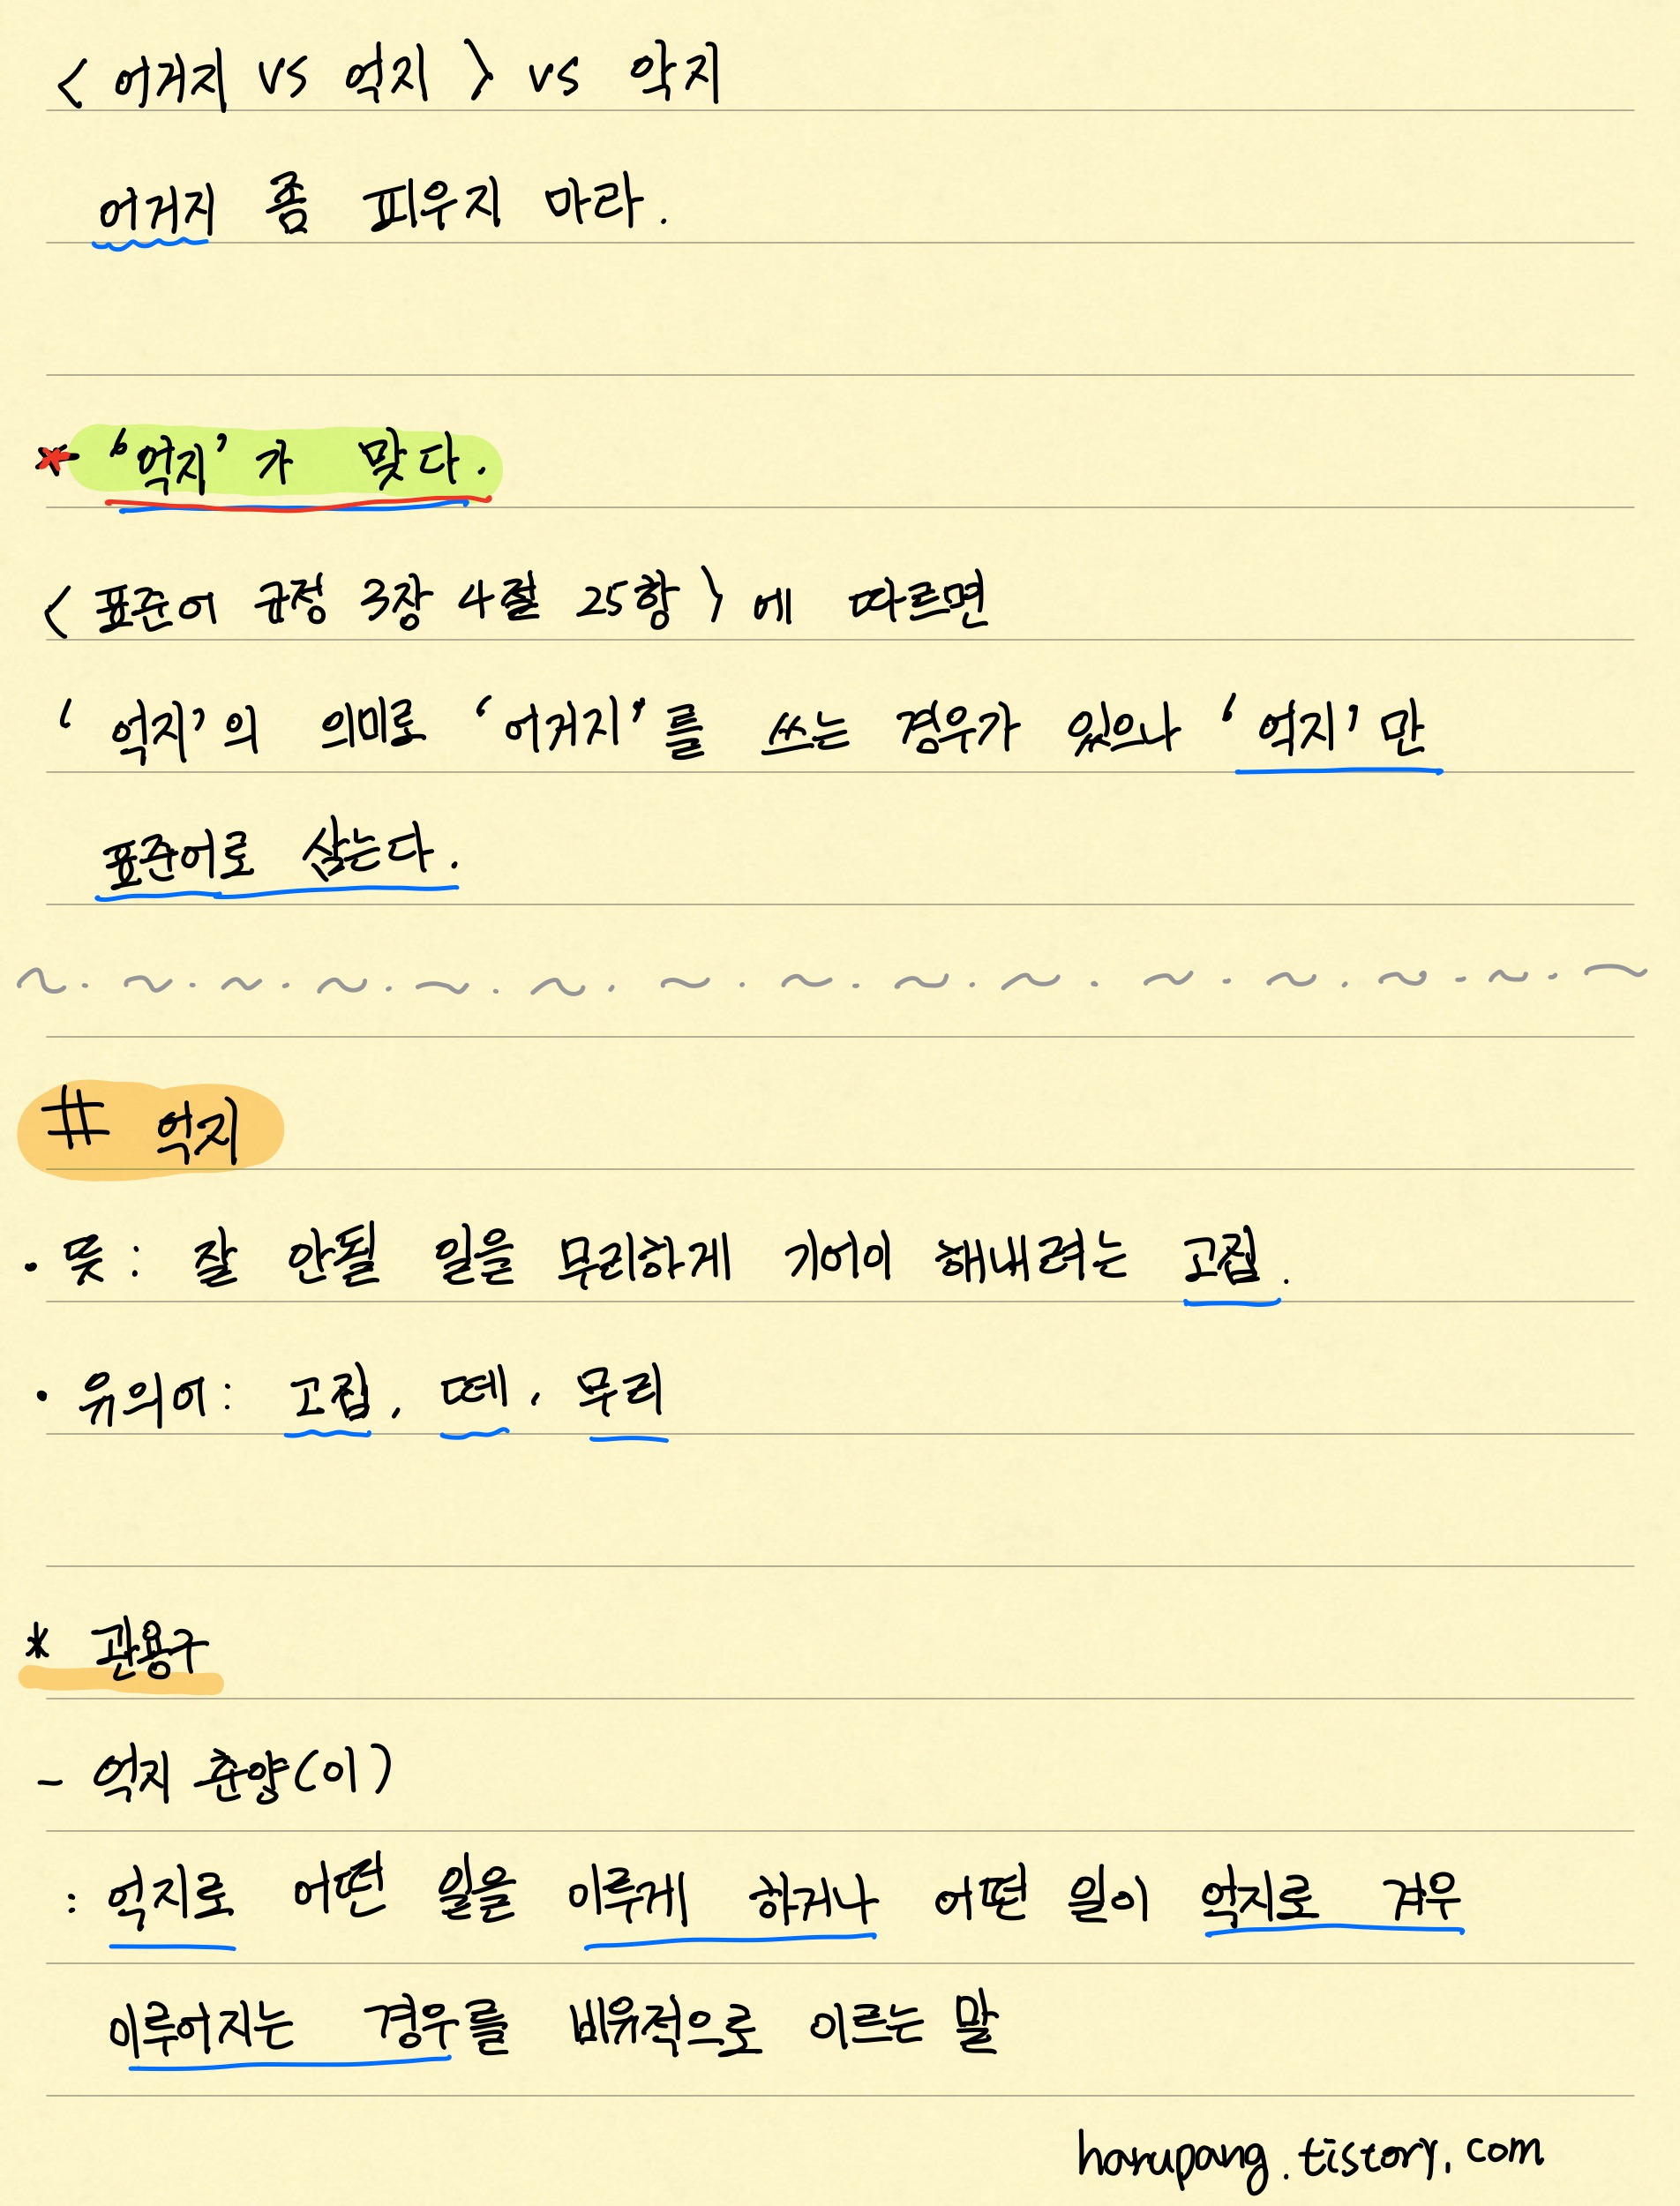 < 어거지 vs 억지 > vs 악지
어거지 좀 피우지 마라.
* '억지'가 맞다.
< 표준어 규정 3장 4절 25항 > 에 따르면
'억지'의 의미로 '어거지'를 쓰는 경우가 있으나 '억지'만
표준어로 삼는다.
# 억지
· 뜻 : 잘 안될 일을 무리하게 기어이 해내려는 고집.
· 유의어 : 고집, 떼, 무리
* 관용구
- 억지 춘양(이)
: 억지로 어떤 일을 이루게 하거나 어떤 일이 억지로 겨우
이루어지는 경우를 비유적으로 이르는 말
harupang.tistory.com